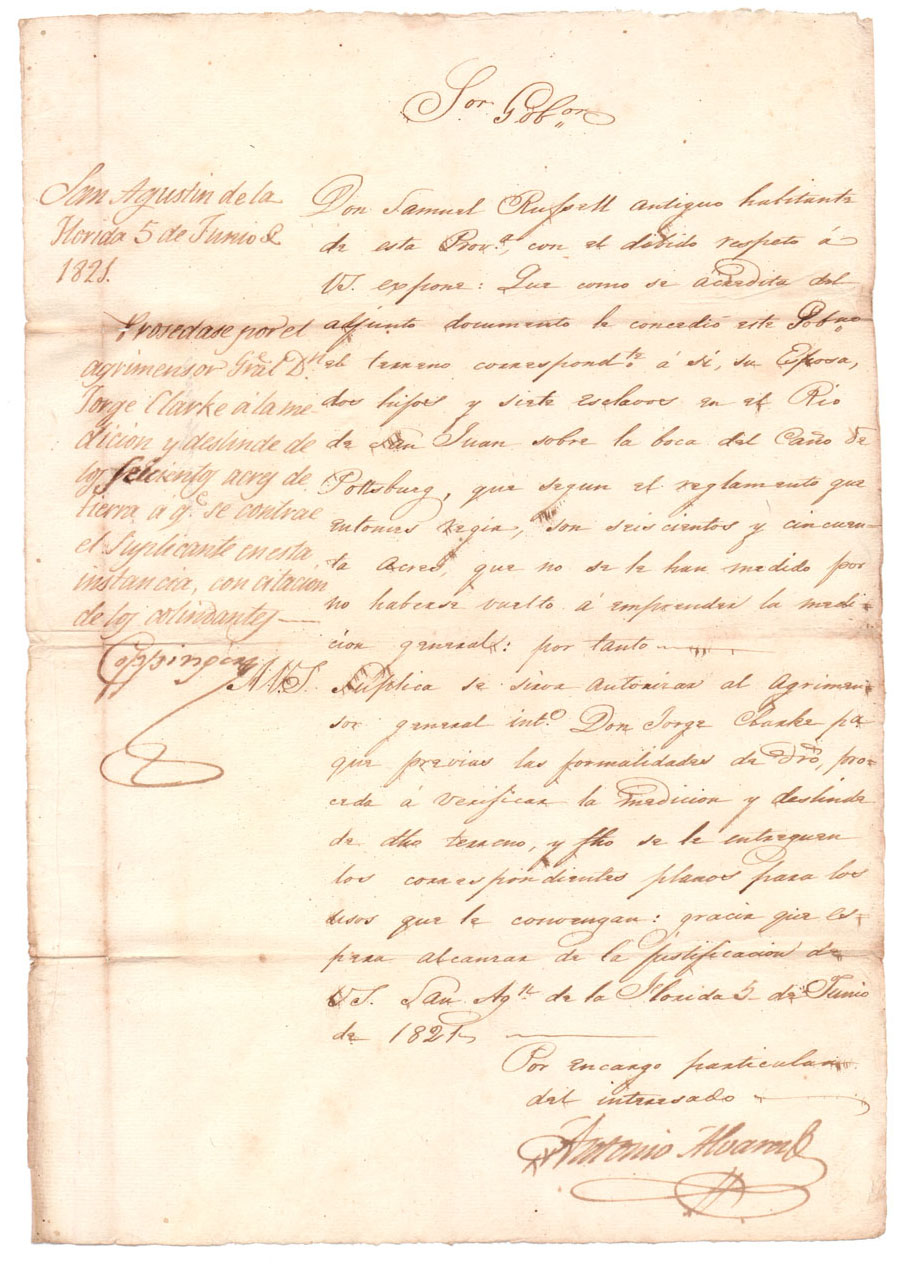 Sor Gobor
San Agustin de la
Florida 5 de Junio de
1821.
Prosedase por el
agrimensor Gral Dn
Jorge Clarke á la me-
dicion y deslinde de
los seicientos acres de
tierra a qe se contrae
el Suplicante en esta
instancia, con citacion
de los colindantes
Coppinger
Don Samuel Russell antiguo habitante
de esta Prova, con el debido respeto á
VS. expone: Que como se acredita del
adjunto documento le concedió este Gobno
el terreno correspondte á sí, su Esposa,
dos hijos y siete esclavos en el Rio
de San Juan sobre la boca del Caño de
Pottsburg, que segun el reglamento que
entonces regia, son seiscientos y cincuen-
ta acres, que no se le han medido por
no haberse vuelto á emprender la medi-
cion general: por tanto
A VS. Suplica se sirva autorizar al Agrimen-
sor general into Don Jorge Clarke pa
que previas las formalidades de dro, pro-
ceda á verificar la medicion y deslinde
de dho terreno, y fho se le entreguen
los correspondientes planos para los
usos que le convengan: gracia que es-
pera alcanzar de la justificacion de
VS. San Agn de la Florida 5 de Junio
de 1821
Por encargo particular
del interesado
Antonio Alvarez